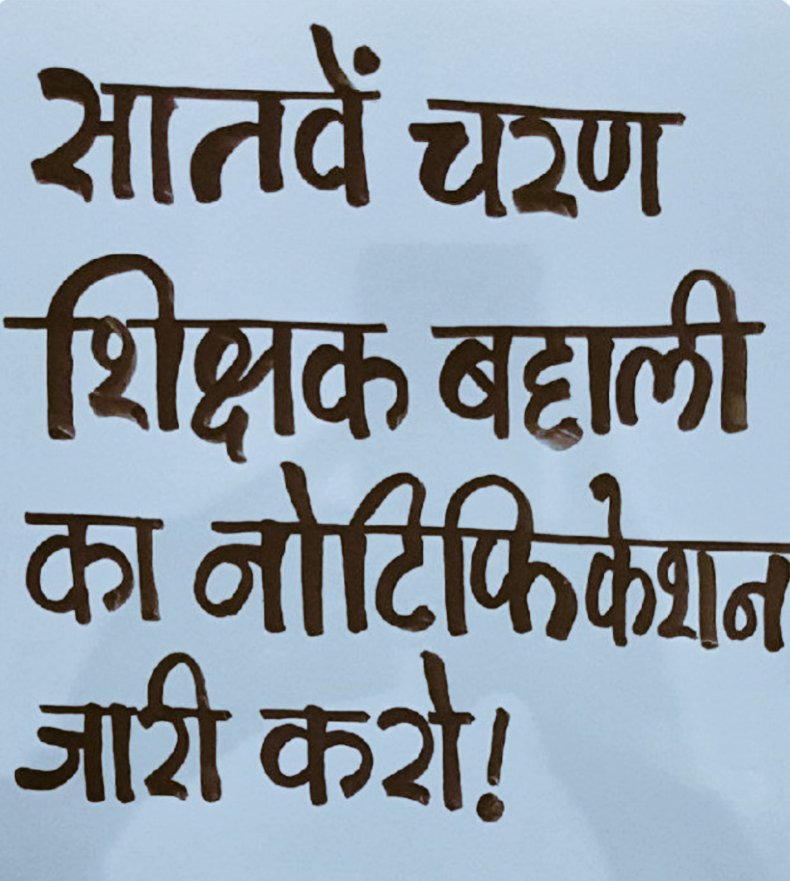 सातवें चरण
शिक्षक बहाली
का नोटिफिकेशन
जारी करो!